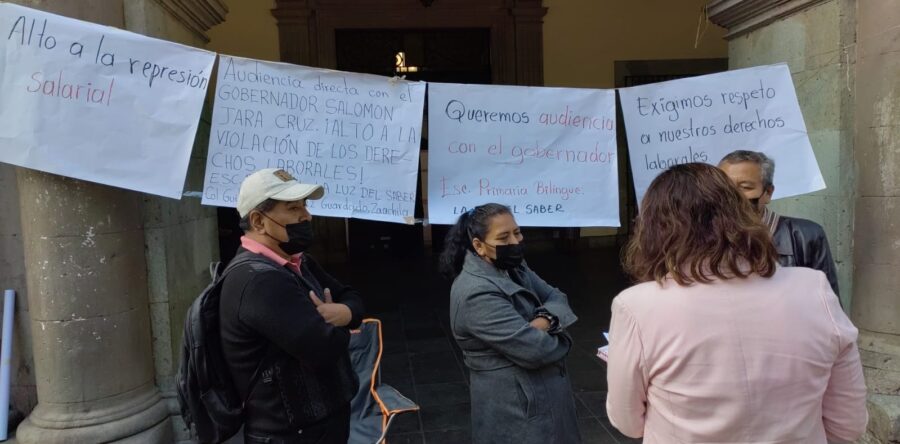 Alto a la represión
salarial
Audiencia directa con el
GOBERNADOR SALOMÓN
JARA CRUZ. ¡ALTO A LA
VIOLACIÓN DE LOS DERE-
CHOS LABORALES!
LUZ DEL SABER
Guardado Zaachila
Queremos audiencia
con el gobernador
Esc. Primaria Bilingüe:
LA DEL SABER
Exigimos respeto
a nuestros derechos
laborales